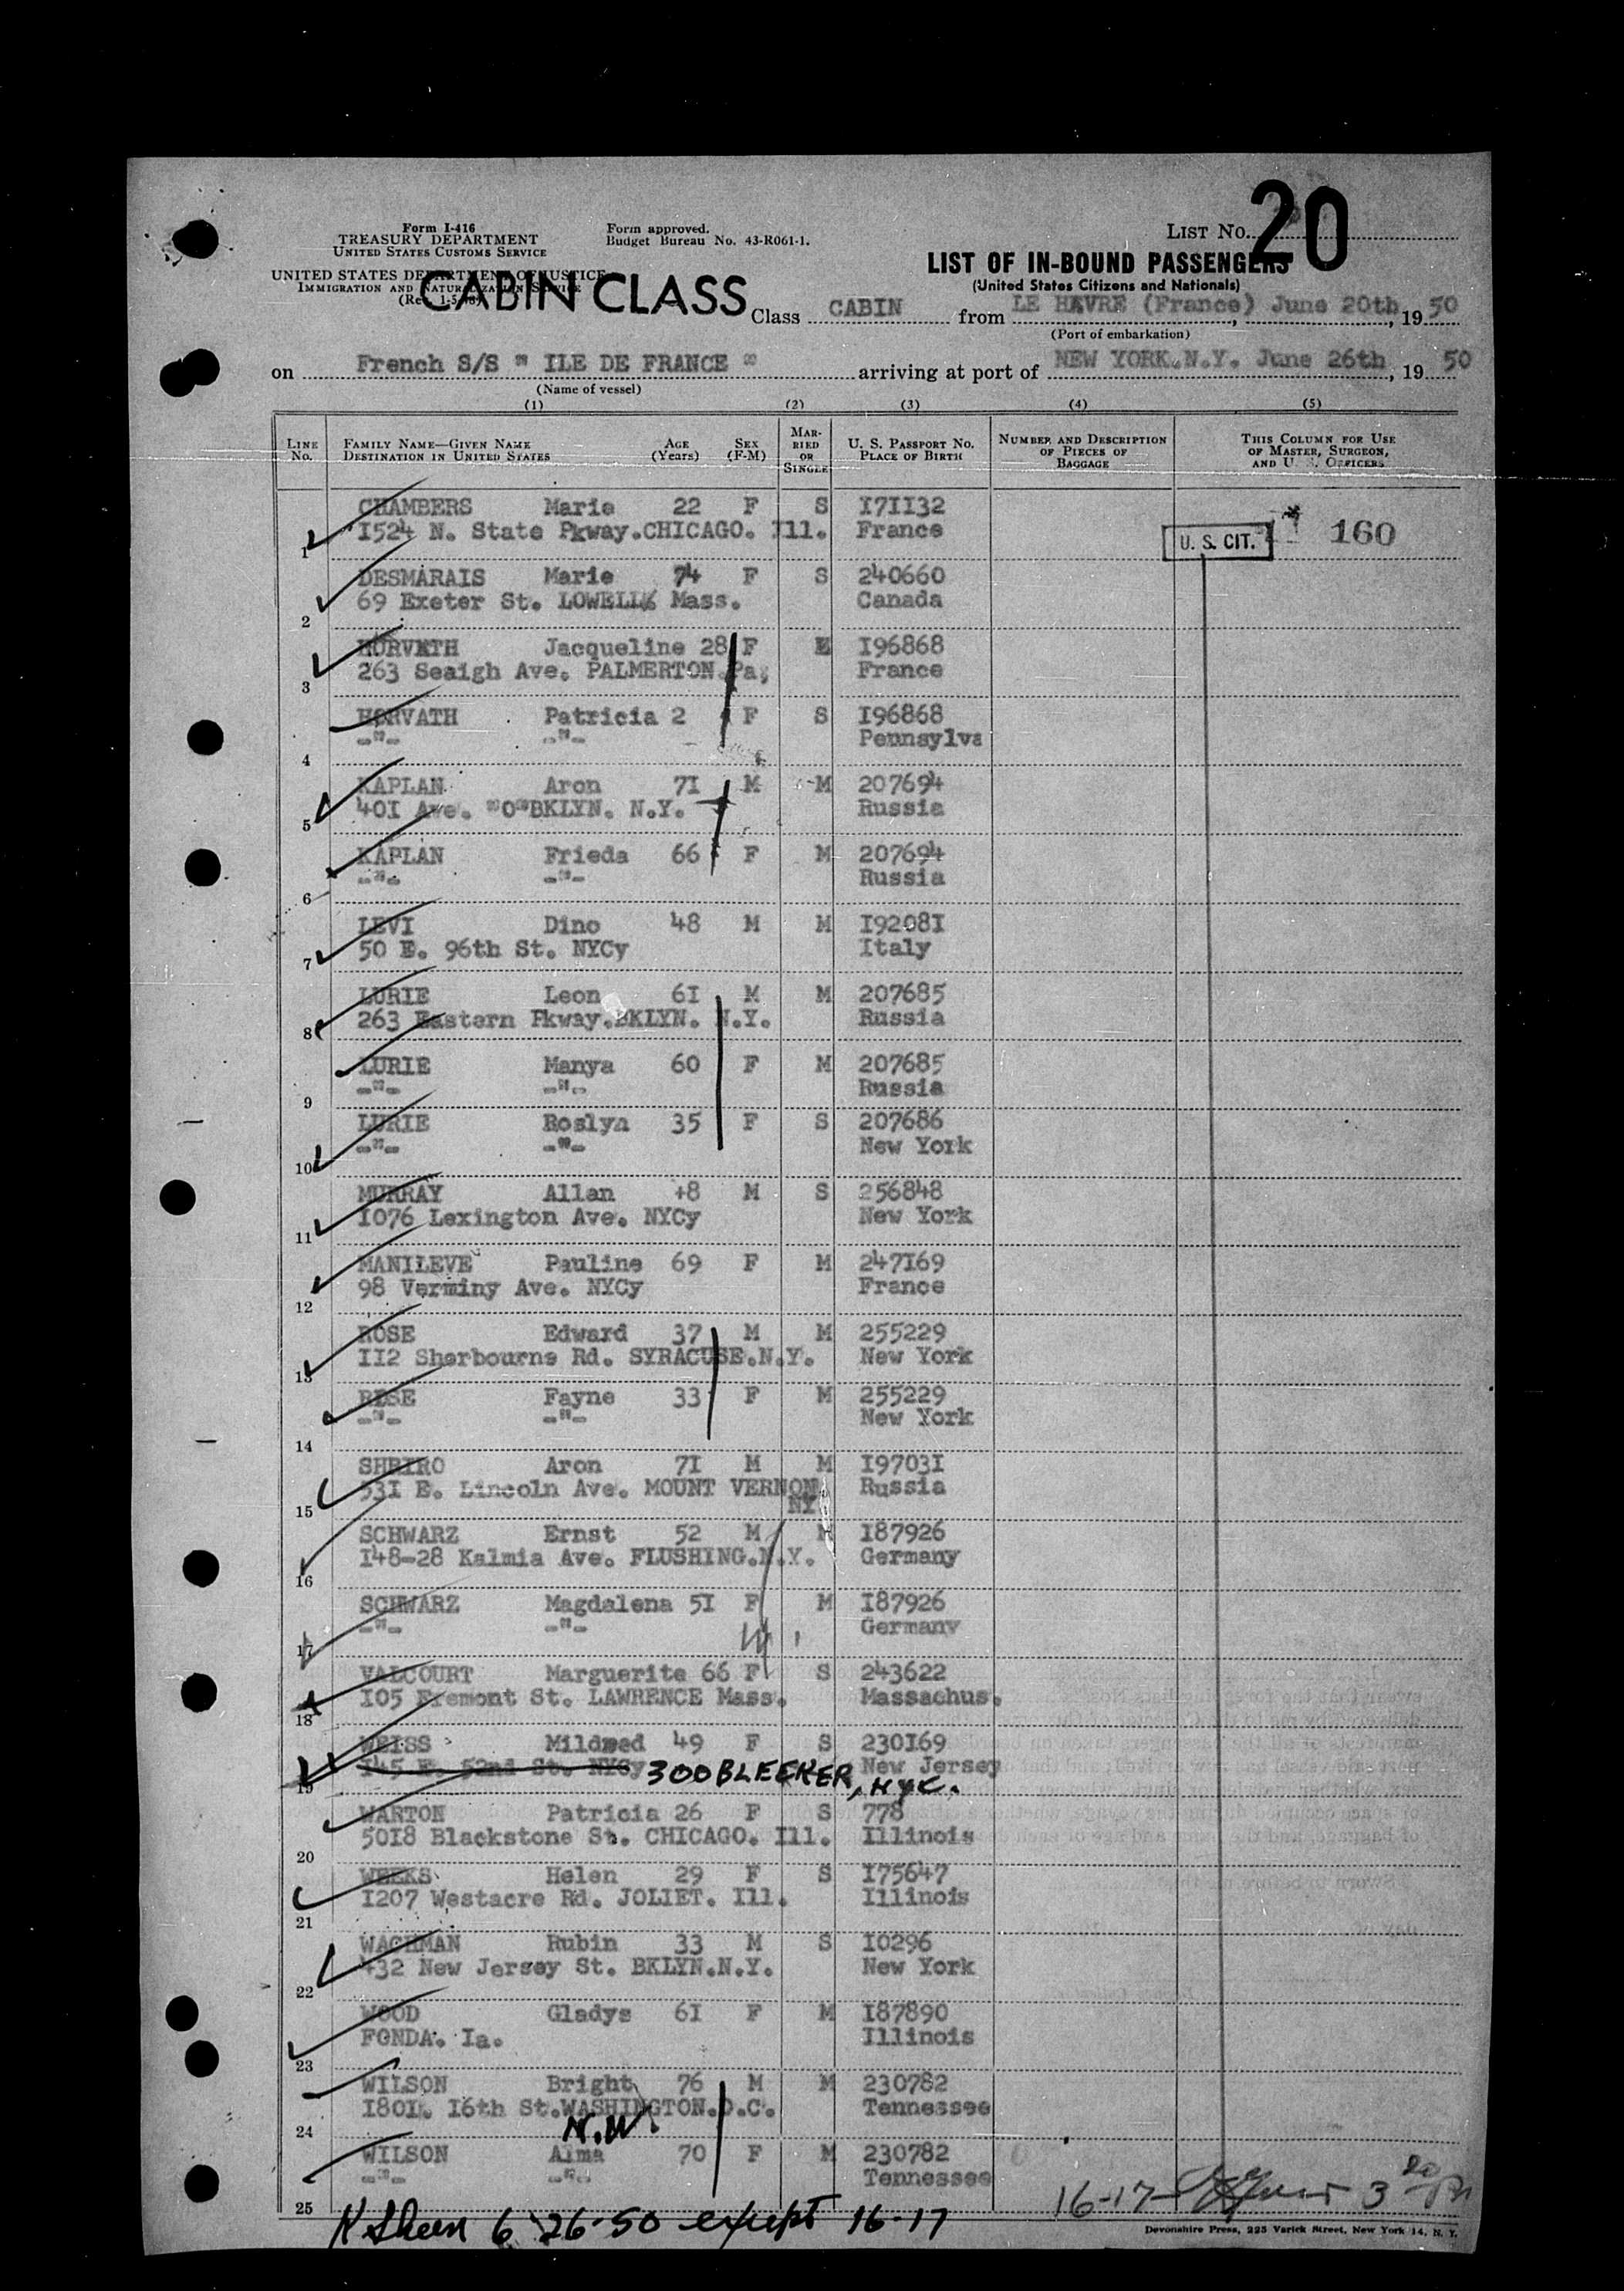 Form I-416
TREASURY DEPARTMENT
UNITED STATES CUSTOMS SERVICE
UNITED STATES DEPARTMENT OF JUSTICE
IMMIGRATION AND NATURALIZATION SERVICE
Form approved.
Budget Bureau No. 43-R061-1.
CABIN CLASS
LIST No. 20
LIST OF IN-BOUND PASSENGERS
(United States Citizens and Nationals)
Class CABIN from LE HAVRE (France), June 20th, 19 50
(Port of embarkation)
on French S/S " ILE DE FRANCE " arriving at port of NEW YORK.N.Y. June 26th, 19 50
(Name of vessel)
(1) (2) (3) (4) (5)
LINE No. FAMILY NAME—GIVEN NAME DESTINATION IN UNITED STATES AGE (Years) SEX (F-M) MARRIED OR SINGLE U. S. PASSPORT NO. PLACE OF BIRTH NUMBER AND DESCRIPTION OF PIECES OF BAGGAGE THIS COLUMN FOR USE OF MASTER, SURGEON, AND U. S. OFFICERS
CHAMBERS Marie 22 F S I7II32
1 I524 N. State Pkway.CHICAGO. Ill. France U. S. CIT. 160
DESMARAIS Marie 74 F S 240660
2 69 Exeter St. LOWELL Mass. Canada
HORVATH Jacqueline 28 F I96868
3 263 Seaigh Ave. PALMERTON.Pa; France
HORVATH Patricia 2 F S I96868
4 -"- -"- Pennsylva
KAPLAN Aron 7I M M 207694
5 40I Ave. "O"BKLYN. N.Y. Russia
KAPLAN Frieda 66 F M 207694
6 -"- -"- Russia
LEVI Dino 48 M M I9208I
7 50 E. 96th St. NYCy Italy
LURIE Leon 6I M M 207685
8 263 Eastern Pkway.BKLYN. N.Y. Russia
LURIE Manya 60 F M 207685
9 -"- -"- Russia
LURIE Roslyn 35 F S 207686
10 -"- -"- New York
MURRAY Allan 48 M S 256848
11 I076 Lexington Ave. NYCy New York
MANILEVE Pauline 69 F M 247I69
12 98 Verminy Ave. NYCy France
ROSE Edward 37 M M 255229
13 II2 Sherbourne Rd. SYRACUSE.N.Y. New York
Fayne 33 F M 255229
14 -"- -"- New York
SHRIRO Aron 7I M M I9703I
15 53I E. Lincoln Ave. MOUNT VERNON NY Russia
SCHWARZ Ernst 52 M M I87926
16 I48-28 Kalmia Ave. FLUSHING.N.Y. Germany
SCHWARZ Magdalena 5I F M I87926
17 -"- -"- Germany
VALCOURT Marguerite 66 F S 243622
18 I05 Fremont St. LAWRENCE Mass. Massachus.
WEISS Mildred 49 F S 230I69
19 I45 E. 52nd St. NYCy 300 BLEEKER, NYC. New Jersey
WARTON Patricia 26 F S 778
20 50I8 Blackstone St. CHICAGO. Ill. Illinois
WEEKS Helen 29 F S I75647
21 I207 Westacre Rd. JOLIET. Ill. Illinois
WACHMAN Rubin 33 M S I0296
22 432 New Jersey St. BKLYN.N.Y. New York
WOOD Gladys 6I F M I87890
23 FONDA. Ia. Illinois
WILSON Bright 76 M M 230782
24 I80I. I6th St.WASHINGTON.D.C. Tennessee
N.W.
WILSON Alma 70 F M 230782
25 -"- -"- Tennessee
16-17
K Sheen 6-26-50 except 16-17
Devonshire Press, 225 Varick Street, New York 14, N. Y.